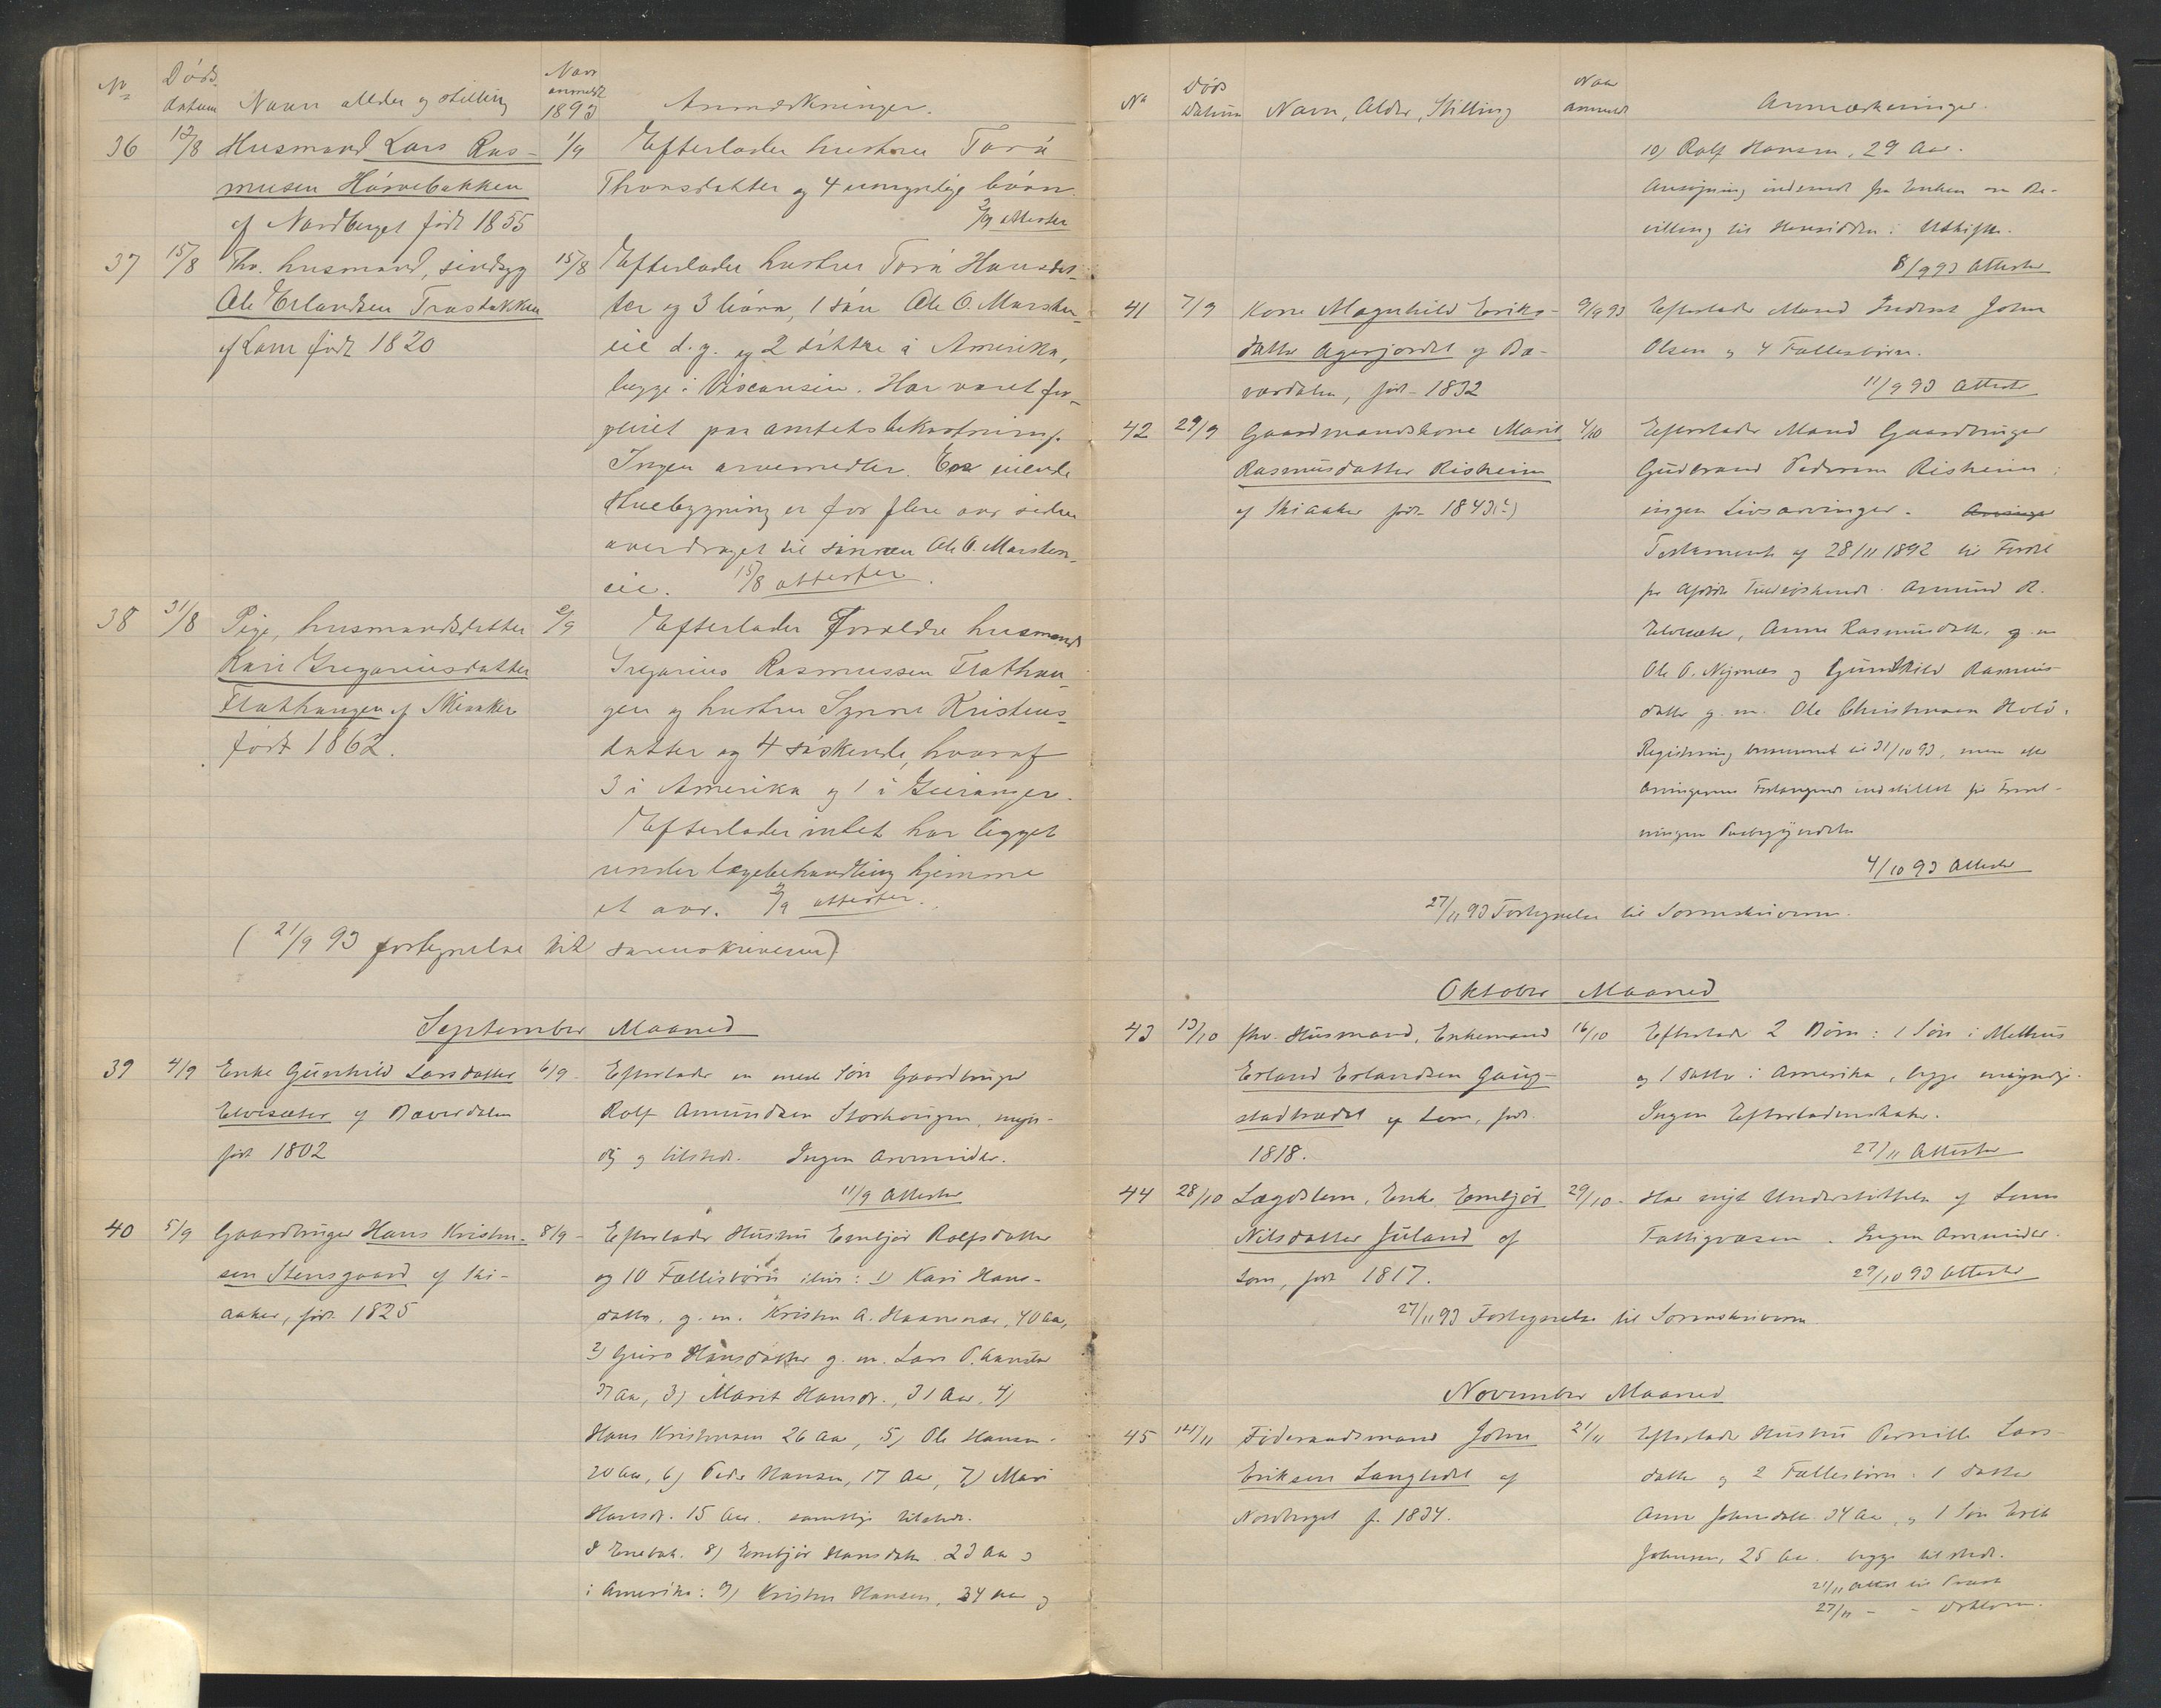 No Døds datum Navn alder og stilling Naar anmeldt 1893 Anmærkninger.
36 12/8 Husmand Lars Ras- 1/9 Efterlader hustru Torø
musen Hørvebakken Thorsdatter og 4 umyndige børn.
af Nordberget født 1855 2/9 attester
37 15/8 Fhv. husmand, sindsyg 15/8 Efterlader hustru Torø Hansdat-
Ole Erlandsen Trosbakken ter og 3 børn, 1 søn Ole O. Marstein-
af Lom født 1820 eie d.y. og 2 døttre i Amerika,
begge i Visconsin. Har været for-
pleiet paa amtets bekostning.
Ingen arvemidler. Een eiende
Stuebygning er for flere aar siden
overdraget til sønnen Ole O. Marstein-
eie. 15/8 attester.
38 31/8 Pige, husmandsdatter 2/9 Efterlader Forældre husmand
Kari Gregoriusdatter Gregorius Rasmussen Flathau-
Flathaugen af Skiaker gen og hustru Synne Kristens-
født 1862. datter og 4 søskende, hvoraf
3 i Amerika og 1 i Geiranger.
Efterlader intet har ligget
under lægebehandling hjemme
et aar. 2/9 attester.
(21/9 93 fortegnelse til sorenskriveren)
September Maaned
39 4/9 Enke Gunhild Larsdatter 6/9 Efterlader en eneste Søn Gaardbruger
Elvesæter af Bæverdalen Rolf Amundsen Storhaugen, myn-
født 1802 dig og tilstede. Ingen Arvemidler.
11/9 Attester
40 5/9 Gaardbruger Hans Kristen- 8/9 Efterlader Hustru Embjør Rolfsdatter
sen Stensgaard af Ski- og 10 Fællesbørn : 1) Kari Hans-
aaker, født 1825 datter, g. m. Kristen A. , 40 Aar,
2) Guro Hansdatter g. m. Lars P.
37 Aar, 3) Marit Hansdr., 31 Aar, 4)
Hans Kristensen 26 Aar, 5) Ole Hansen
20 Aar, 6) Peder Hansen, 17 Aar, 7) Mari
Hansdr. 15 Aar. samtlige tilstede.
8) Embjør Hansdatter 23 Aar og
i Amerika: 9) Kristen Hansen, 34 Aar og
No Døds Datum Navn, Alder, Stilling Naar anmeldt Anmærkninger.
10) Rolf Hansen, 29 Aar.
Ansøgning indsendt fra Enken om Be-
villing til Hensidden i Uskifte.
8/9 93 Attester
41 7/9 Kone Magnhild Eriks- 9/9 93 Efterlader Mand Inderst John
datter Agerjordet af Bæ- Olsen og 4 Fællesbørn.
verdalen, født 1832 11/9 93 Attester
42 29/9 Gaardmandskone Marit 4/10 Efterlader Mand Gaardbruger
Rasmusdatter Risheim Gudbrand Pedersen Risheim;
af Skiaaker født 1843(?) ingen Livsarvinger.
Testament af 28/11 1892 til Fordel
for Afdødes Amund R.
Elvesæter, Anne Rasmusdatter g. m.
Ole O. Nyrnæs og Gunhild Rasmus-
datter g. m. Ole Christensen Holø.
Registrering berammet til 31/10 93, men efter
Arvingernes Forlangende indstillet før Forret-
ningens Paabegyndelse
4/10 93 Attester
27/11 93 Fortegnelse til Sorenskriveren.
Oktober Maaned
43 13/10 fhv. Husmand, Enkemand 16/10 Efterlader 2 Børn: 1 Søn i Melhus
Erland Erlandsen Gaup- og 1 Datter i Amerika, begge myndige.
stadtrædet af Lom, født Ingen Efterladenskaber.
1818. 27/11 Attester
44 28/10 Lægdslem, Enke Embjør 29/10 Har nydt Understøttelse af Loms
Nilsdatter Juland af Fattigvæsen. Ingen Arvemidler.
Lom, født 1817. 29/10 93 Attester
27/11 93 Fortegnelse til Sorenskriveren
November Maaned
45 14/11 Føderaadsmand John 21/11 Efterlader Hustru Pernille Lars-
Eriksen Langledet af datter og 2 Fællesbørn: 1 Datter
Nordberget f. 1834. Anne Johnsdatter 34 Aar, og 1 Søn Erik
Johnsen, 25 Aar. begge tilstede.
21/11 Attest til
27/11 - -